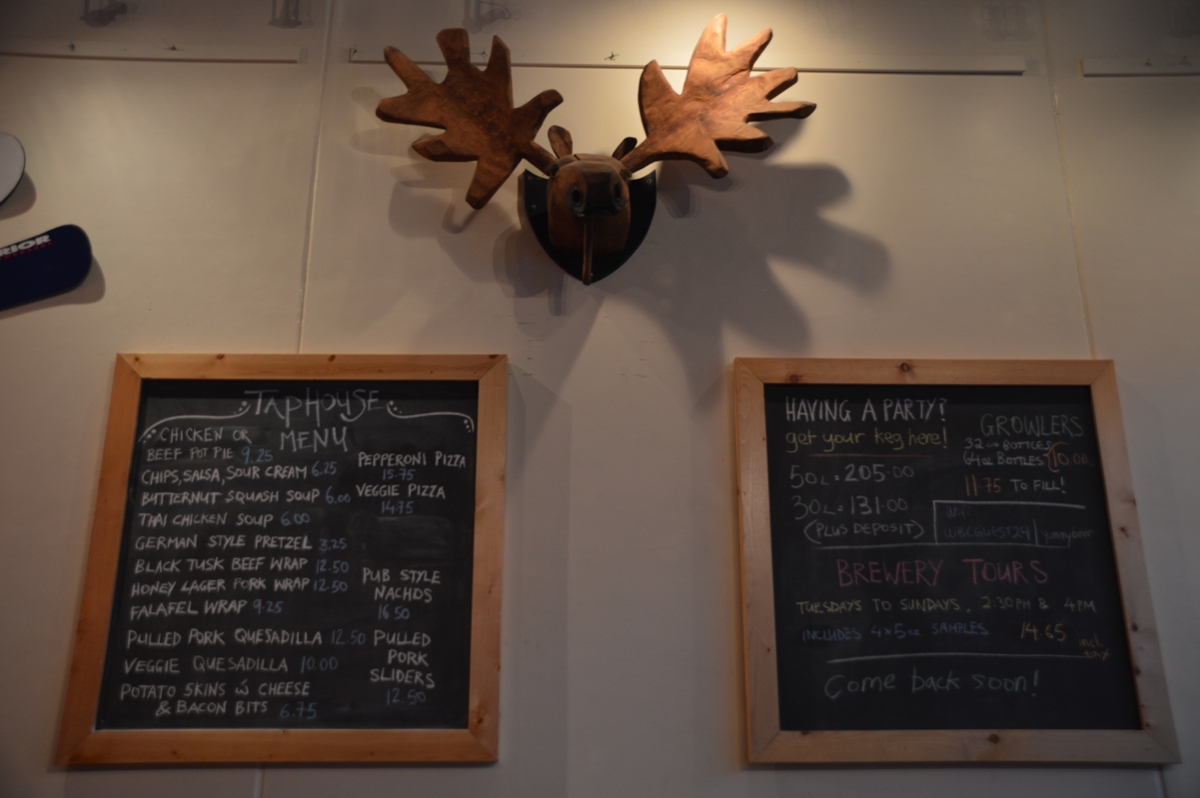 RIOR
TAPHOUSE
MENU
CHICKEN OR
BEEF POT PIE 9.25
CHIPS, SALSA, SOUR CREAM 6.25
BUTTERNUT SQUASH SOUP 6.00
THAI CHICKEN SOUP 6.00
GERMAN STYLE PRETZEL 3.25
BLACK TUSK BEEF WRAP 12.50
HONEY LAGER PORK WRAP 12.50
FALAFEL WRAP 9.25
PULLED PORK QUESADILLA 12.50
VEGGIE QUESADILLA 10.00
POTATO SKINS w/ CHEESE
& BACON BITS 6.75
PEPPERONI PIZZA
15.75
VEGGIE PIZZA
14.75
PUB STYLE
NACHOS
16.50
PULLED
PORK
SLIDERS
12.50
HAVING A PARTY?
get your keg here!
50L = 205.00
30L = 131.00
(PLUS DEPOSIT)
GROWLERS
32 oz BOTTLES
64 oz BOTTLES 10.00
11.75 TO FILL!
WBCGUEST24 yummybeer
BREWERY TOURS
TUESDAYS TO SUNDAYS, 2:30PM & 4PM
INCLUDES 4x5oz SAMPLES 14.65 incl. tax
Come back soon!